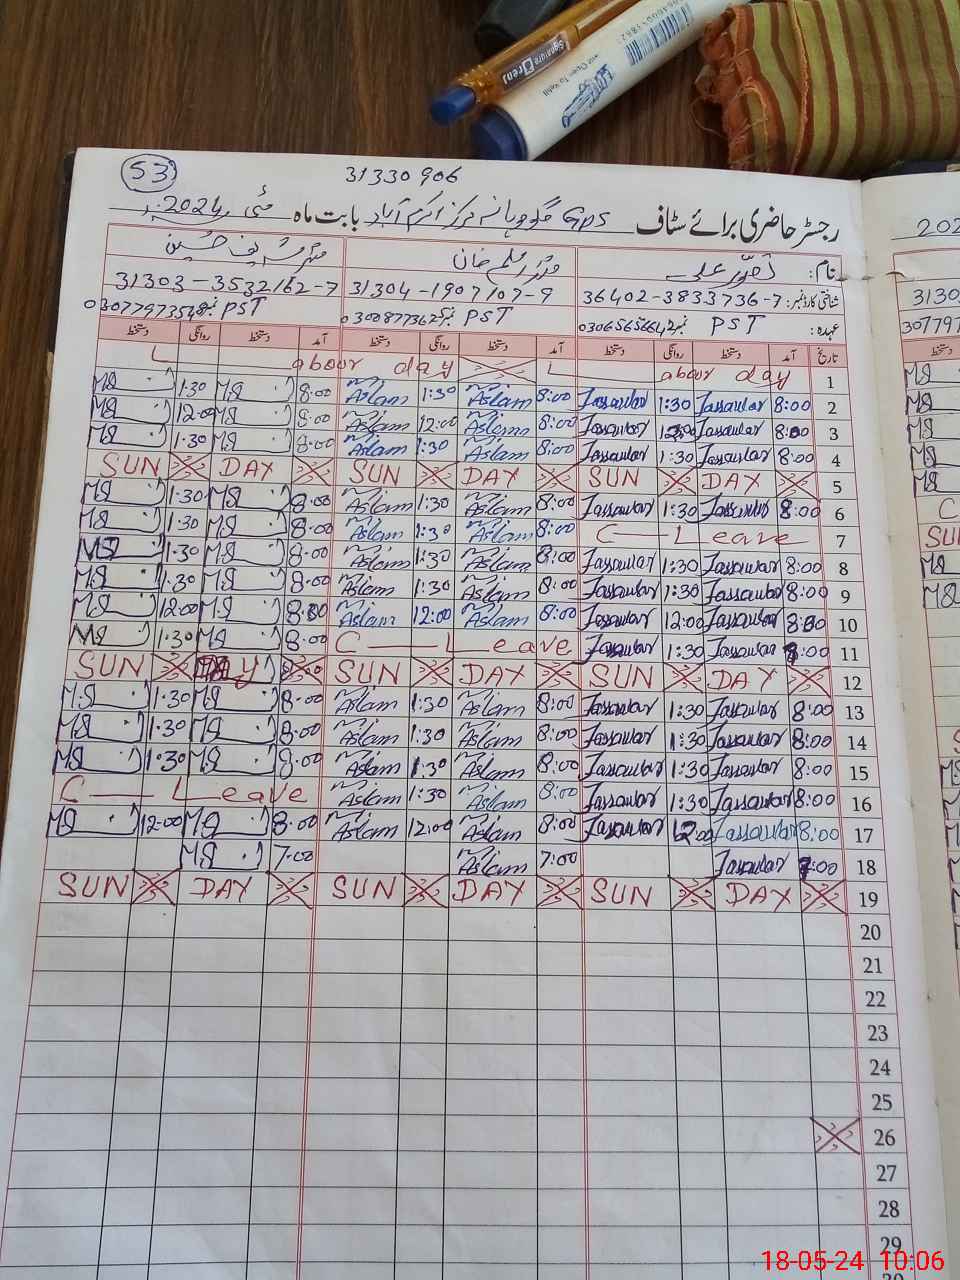 Signature
53
31330906
رجسٹر حاضری برائے سٹاف GPS مرکز اکرم آباد بابت ماہ مئی 2024
نام: تصور علی
شناختی کارڈ نمبر: 36402-3833736-7 31304-1907107-9 31303-3532162-7
عہدہ: PST PST PST
تاریخ آمد دستخط روانگی دستخط آمد دستخط روانگی دستخط آمد دستخط روانگی دستخط
Labour day Labour day 1
MS 1:30 MS 8:00 Aslam 1:30 Aslam 8:00 Tassawar 1:30 Tassawar 8:00 2
MS 12:00 MS 8:00 Aslam 12:00 Aslam 8:00 Tassawar 12:00 Tassawar 8:00 3
MS 1:30 MS 8:00 Aslam 1:30 Aslam 8:00 Tassawar 1:30 Tassawar 8:00 4
SUN DAY SUN DAY SUN DAY 5
MS 1:30 MS 8:00 Aslam 1:30 Aslam 8:00 Tassawar 1:30 Tassawar 8:00 6
MS 1:30 MS 8:00 Aslam 1:30 Aslam 8:00 C Leave 7
MS 1:30 MS 8:00 Aslam 1:30 Aslam 8:00 Tassawar 1:30 Tassawar 8:00 8
MS 1:30 MS 8:00 Aslam 1:30 Aslam 8:00 Tassawar 1:30 Tassawar 8:00 9
MS 12:00 MS 8:00 Aslam 12:00 Aslam 8:00 Tassawar 12:00 Tassawar 8:00 10
MS 1:30 MS 8:00 C Leave Tassawar 1:30 Tassawar 8:00 11
SUN DAY SUN DAY SUN DAY 12
MS 1:30 MS 8:00 Aslam 1:30 Aslam 8:00 Tassawar 1:30 Tassawar 8:00 13
MS 1:30 MS 8:00 Aslam 1:30 Aslam 8:00 Tassawar 1:30 Tassawar 8:00 14
MS 1:30 MS 8:00 Aslam 1:30 Aslam 8:00 Tassawar 1:30 Tassawar 8:00 15
C Leave Aslam 1:30 Aslam 8:00 Tassawar 1:30 Tassawar 8:00 16
MS 12:00 MS 8:00 Aslam 12:00 Aslam 8:00 Tassawar 12:00 Tassawar 8:00 17
MS 7:00 Aslam 7:00 Tassawar 7:00 18
SUN DAY SUN DAY SUN DAY 19
20
21
22
23
24
25
26
27
28
29
18-05-24 10:06